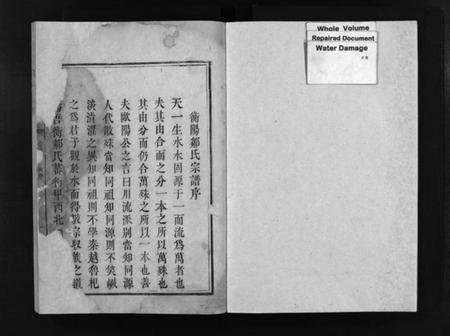 Whole Volume
Repaired Document
Water Damage
衡陽鄒氏宗譜序
天一生水水固源于一而流爲萬者也
夫其由合而之分一本之所以萬殊也
其由分而仍合萬殊之所以一本也善
夫歐陽公之言曰用流派別當知同源
人代散殊當知同祖知同源則不笑鹹
淡清濁之異知同祖則不學秦越魯杞
之爲君子觀於水而得敬宗收族之道
吾衡鄒氏 甲西北